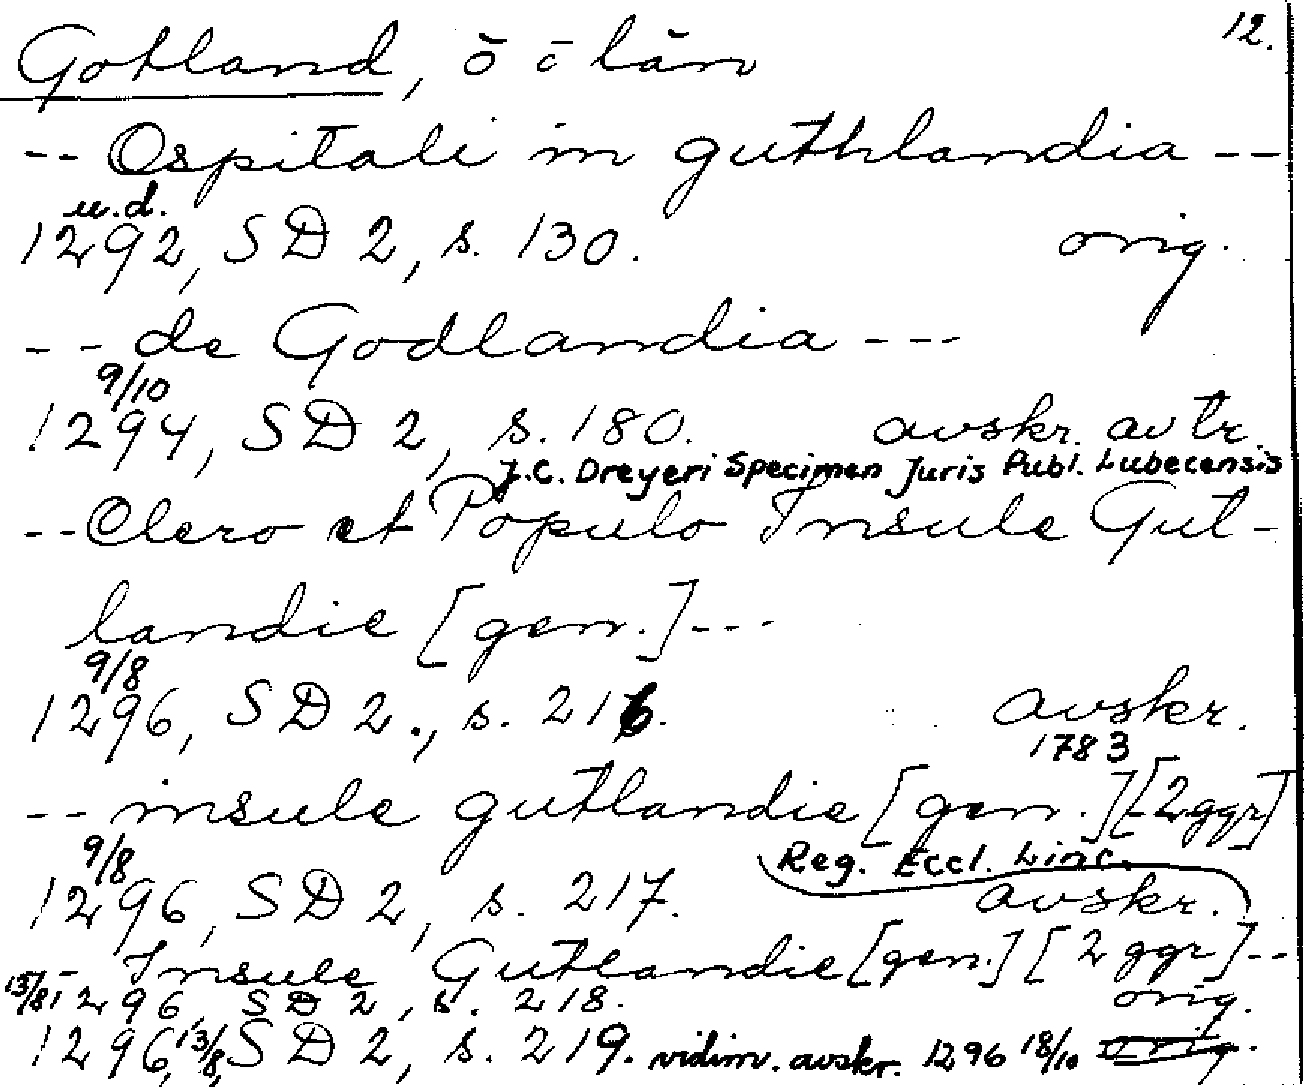 12.
Gotland, ö o län
-- Ospitali in guthlandia --
u.d.
1292, SD 2, s. 130. orig.
-- de Godlandia ---
9/10
1294, SD 2, s. 180. avskr. av tr.
J.C. Dreyeri Specimen Juris Publ. Lubecensis
-- Clero et Populo Insule Gut-
landie [gen.] ---
9/8
1296, SD 2., s. 216. avskr.
1783
-- insule gutlandie [gen.] [2 ggr]
9/8 Reg. Eccl. Linc.
1296, SD 2, s. 217. avskr.
-- Insule Gutlandie [gen.] [2 ggr] --
13/8 1296, SD 2, s. 218. orig.
1296, 13/8, SD 2, s. 219. vidim. avskr. 1296 18/10 orig.